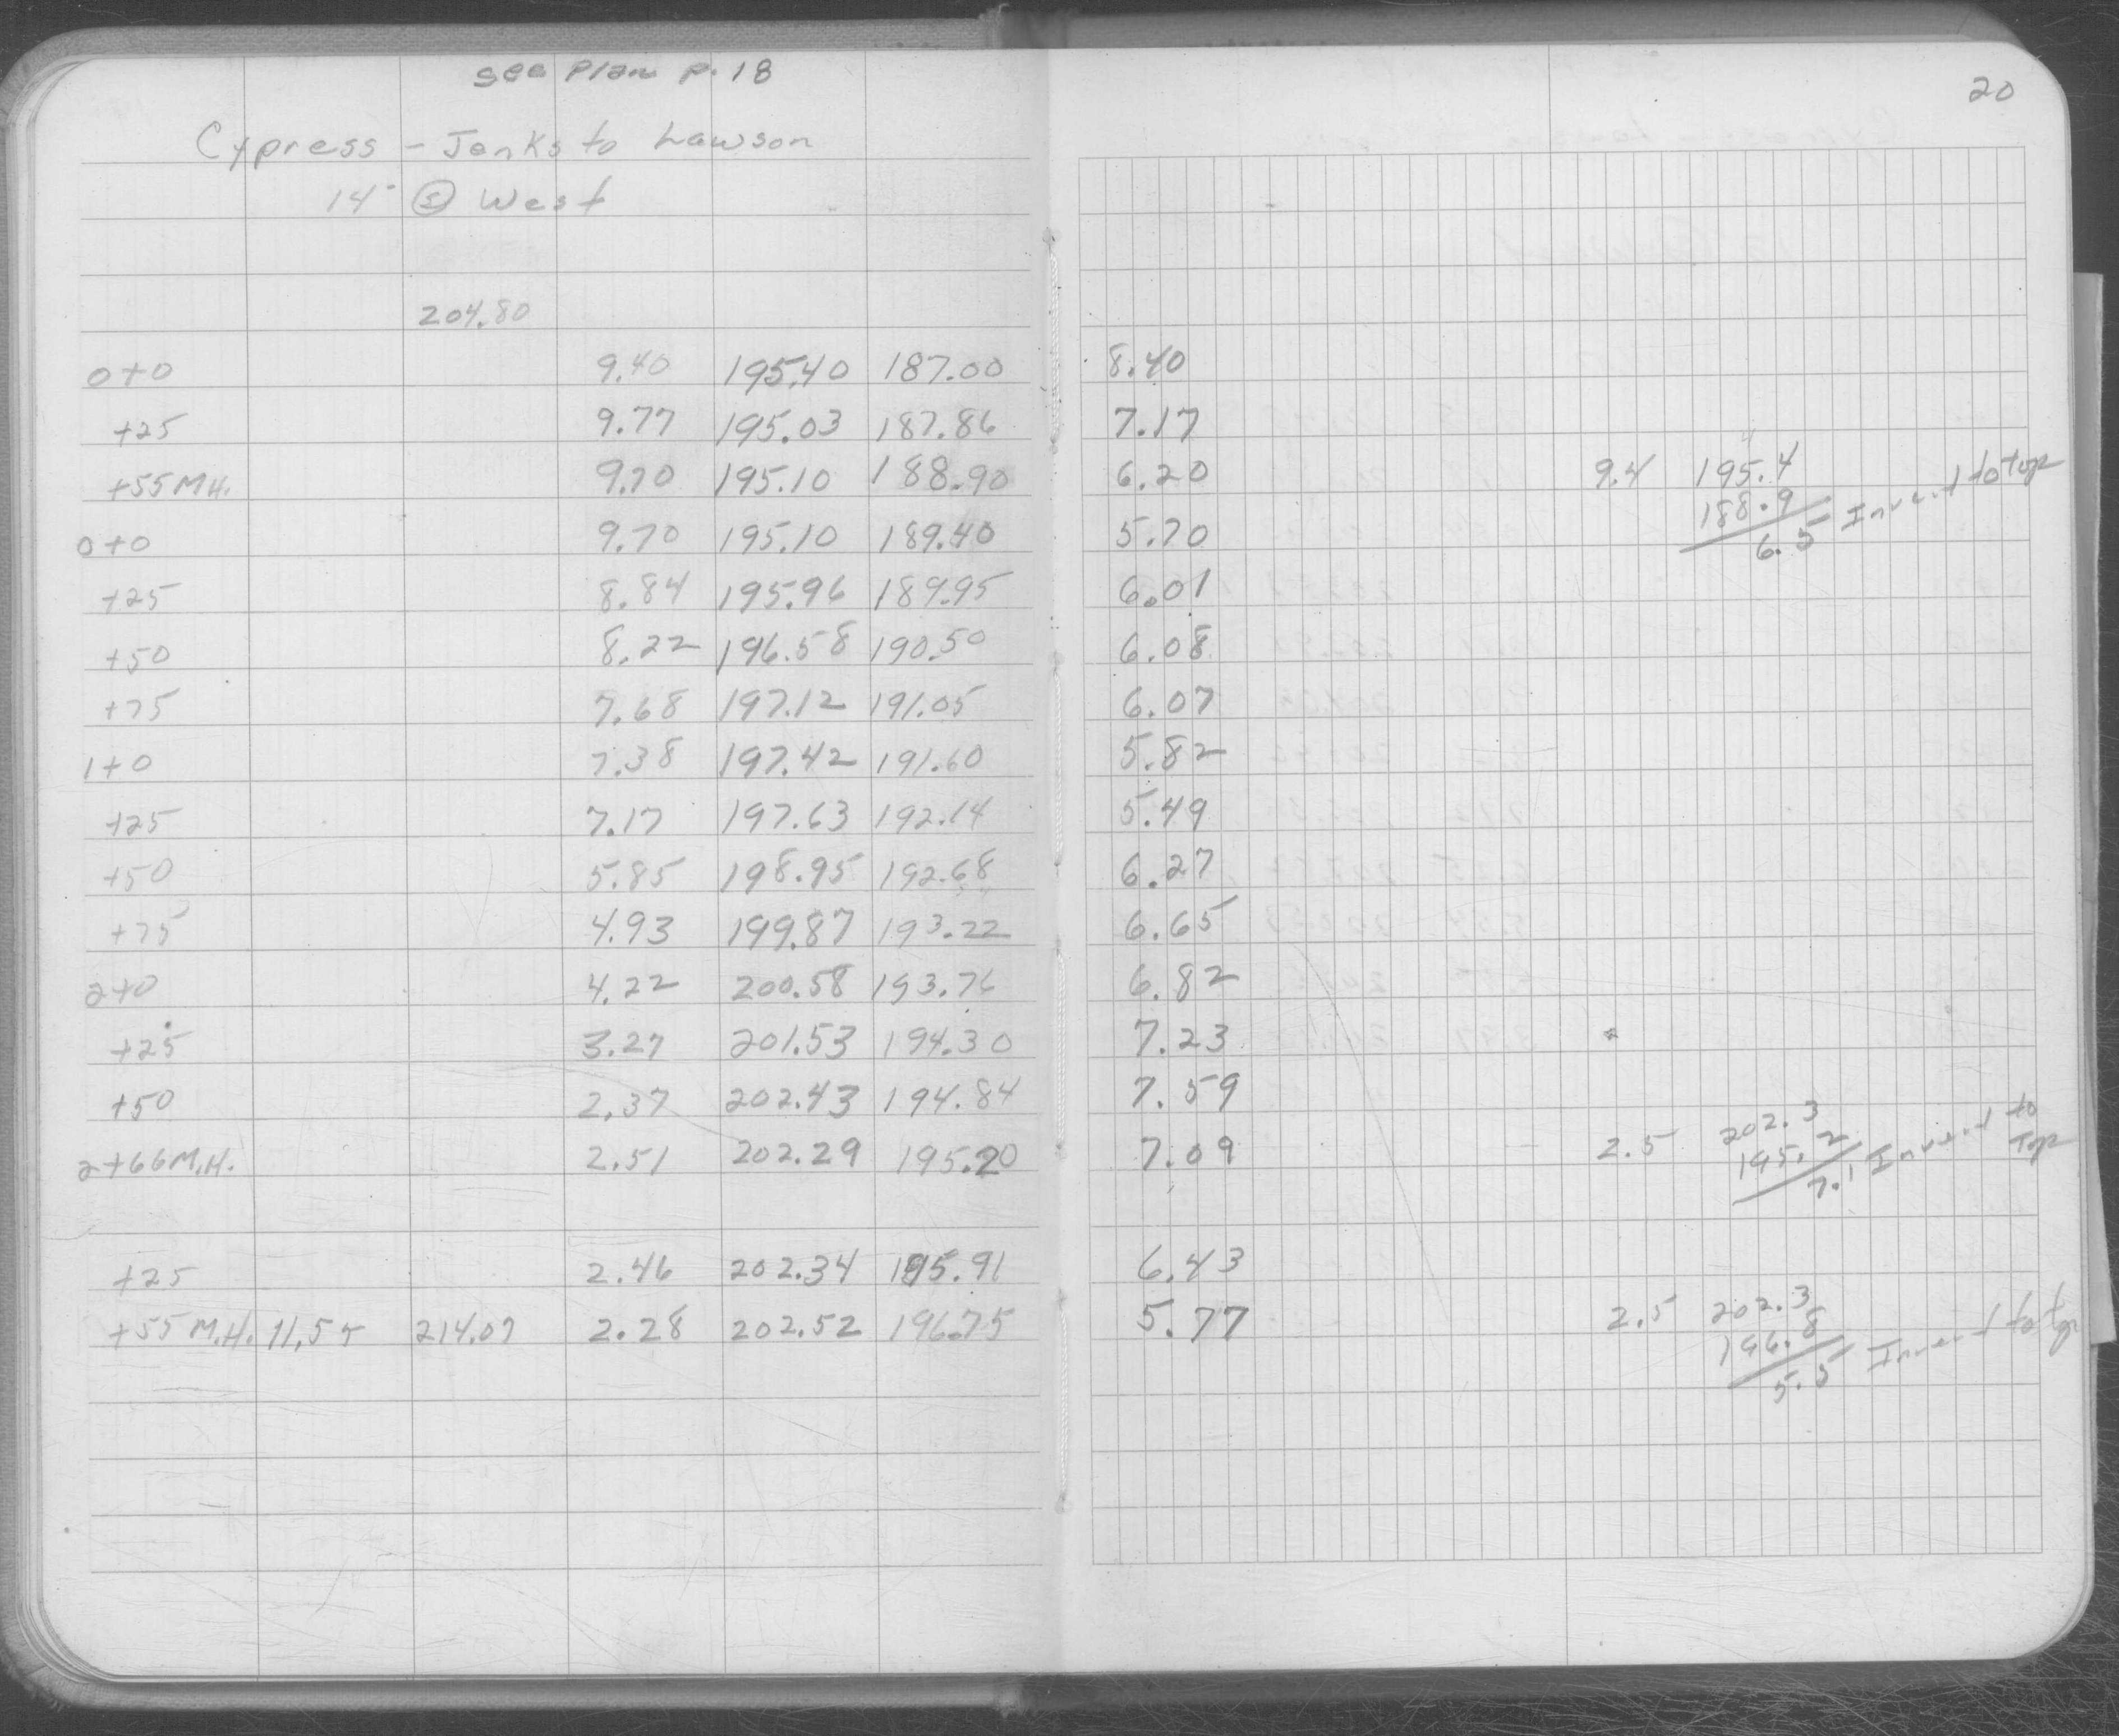 see Plan p. 18
20
Cypress - Jenks to Lawson
14' Ⓢ West
204.80
0+0 9.40 195.40 187.00 8.40
+25 9.77 195.03 187.86 7.17
+55 M.H. 9.70 195.10 188.90 6.20 9.4 195.4
188.9 Invert to top
6.5
0+0 9.70 195.10 189.40 5.70
+25 8.84 195.96 189.95 6.01
+50 8.22 196.58 190.50 6.08
+75 7.68 197.12 191.05 6.07
1+0 7.38 197.42 191.60 5.82
+25 7.17 197.63 192.14 5.49
+50 5.85 198.95 192.68 6.27
+75 4.93 199.87 193.22 6.65
2+0 4.22 200.58 193.76 6.82
+25 3.27 201.53 194.30 7.23
+50 2.37 202.43 194.84 7.59
2+66 M.H. 2.51 202.29 195.20 7.09 2.5 202.3
195.2 Invert to Top
7.1
+25 2.46 202.34 195.91 6.43
+55 M.H. 11.55 214.07 2.28 202.52 196.75 5.77 2.5 202.3
196.8 Invert to top
5.5